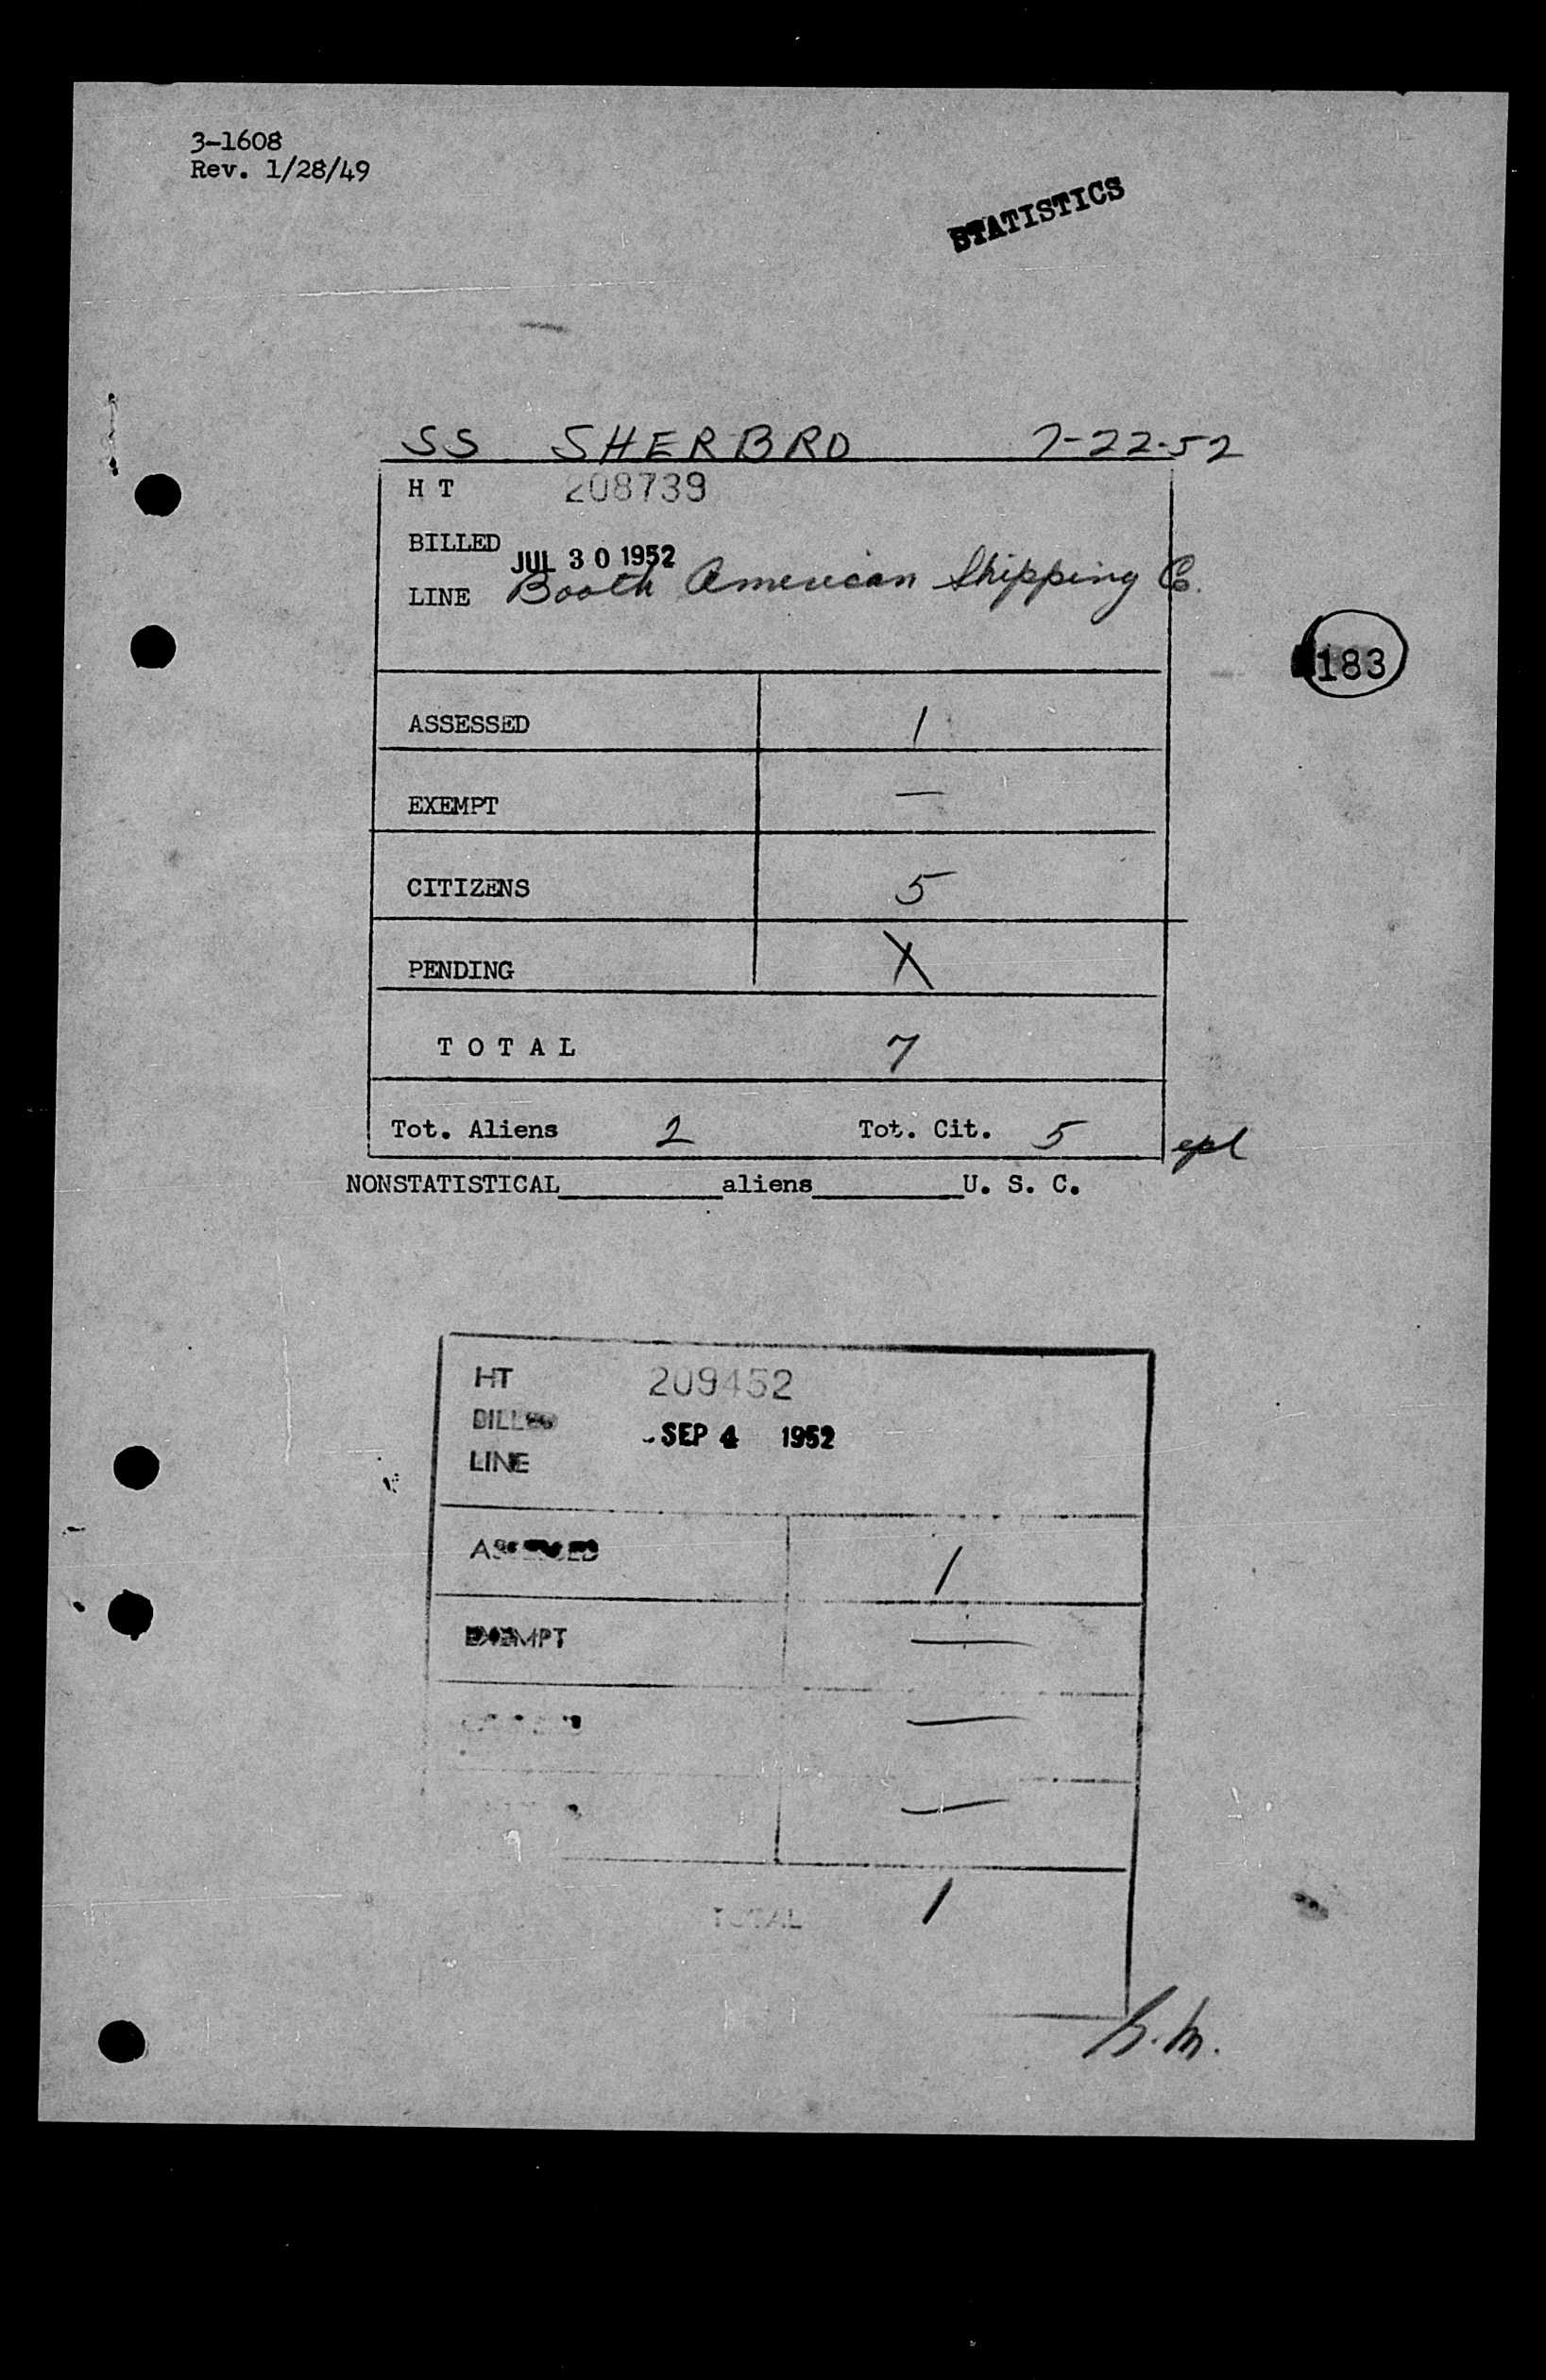 3-1608
Rev. 1/28/49
STATISTICS
SS SHERBRO 7-22-52
H T 208739
BILLED JUL 30 1952
LINE Booth American Shipping Co.
183
ASSESSED 1
EXEMPT —
CITIZENS 5
PENDING X
TOTAL 7
Tot. Aliens 2 Tot. Cit. 5 epl
NONSTATISTICAL__________aliens__________U. S. C.
HT 209452
BILLED SEP 4 1952
LINE
ASSESSED 1
EXEMPT —
—
—
TOTAL 1
h.m.